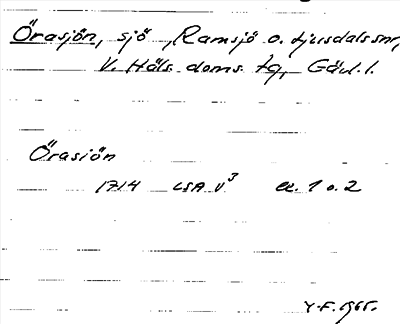 Örasjön, sjö, Ramsjö o. Ljusdals snr,
V. Häls. doms. tg, Gävl. l.
Örasiön
1714 LSA V³ ex. 1 o. 2
Y.F. 1965.